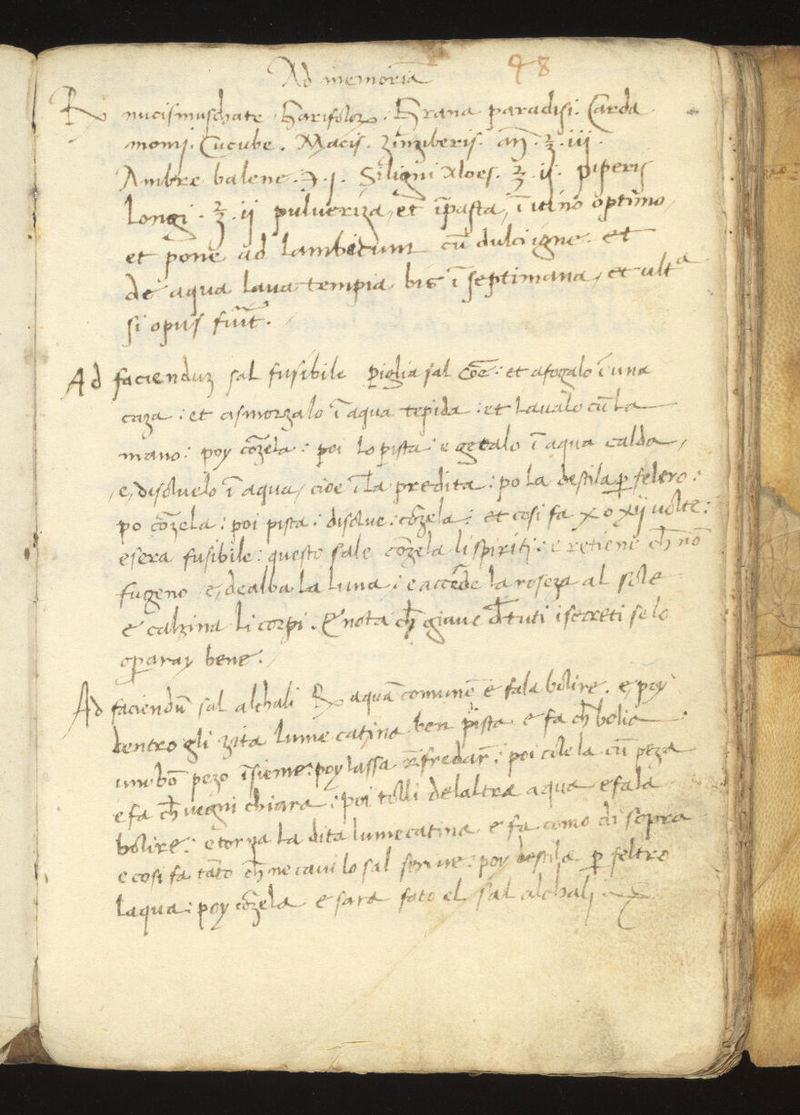 Ad memoriā
98
℞ nucismuschate · Garifoloꝝ · Grana paradisi · Carda
momj · Cucube · Macis · zīnziberis · añ · ℥ · iii ·
Ambre balene · ℈ · j · Siligni Aloes · ℥ · ij · piperis
longi · ℥ · ij pulueriza, et īpasta, ī uino optimo,
et pone ad lambicum cū dulci igne · et
de aqua laua tempia bis ī septimana, et ultᵃ
si opus fuīt ·
Ad facienduꝫ sal fusibile piglia sal coē : et afogalo ī una
caza : et asmorzalo ī aqua tepida : et laualo cū la
mano : poy cōzela : poi lo pista : e getalo ī aqua calda,
e, disoluelo ī aqua, cioe ī la predita : po la destila ꝑ feltro :
po cōzela : poi pista : disolue : cōzela : et cosi fa x o xij uolte :
e sera fusibile : questo sale cōzela li spiriti : e retiene ch̄ nō
fugeno e, dealba la luna : e accēde la roseza al sole
e calzina li corpi . E nota ch̄ giaue d̄ tuti i secreti se lo
oꝑaray bene .
Ad faciendū sal alchali ℞ aquā comunē e fala bolire . e poy
dentro gli zita lume catina ben pista e fa ch̄ bolia
uno bō pezo īsieme : poy lassa rīfredar̄ : poi cola la cū peza
e fa ch̄ uegni chiara : poi tolli delaltra aqua e fala
bolire : e torna la dita lumecatina e fa como di sopra
e cosi fa tāto ch̄ ne caui lo sal : poy destila ꝑ feltro
laqua : poy cōzela e sara fato el sal alchalj